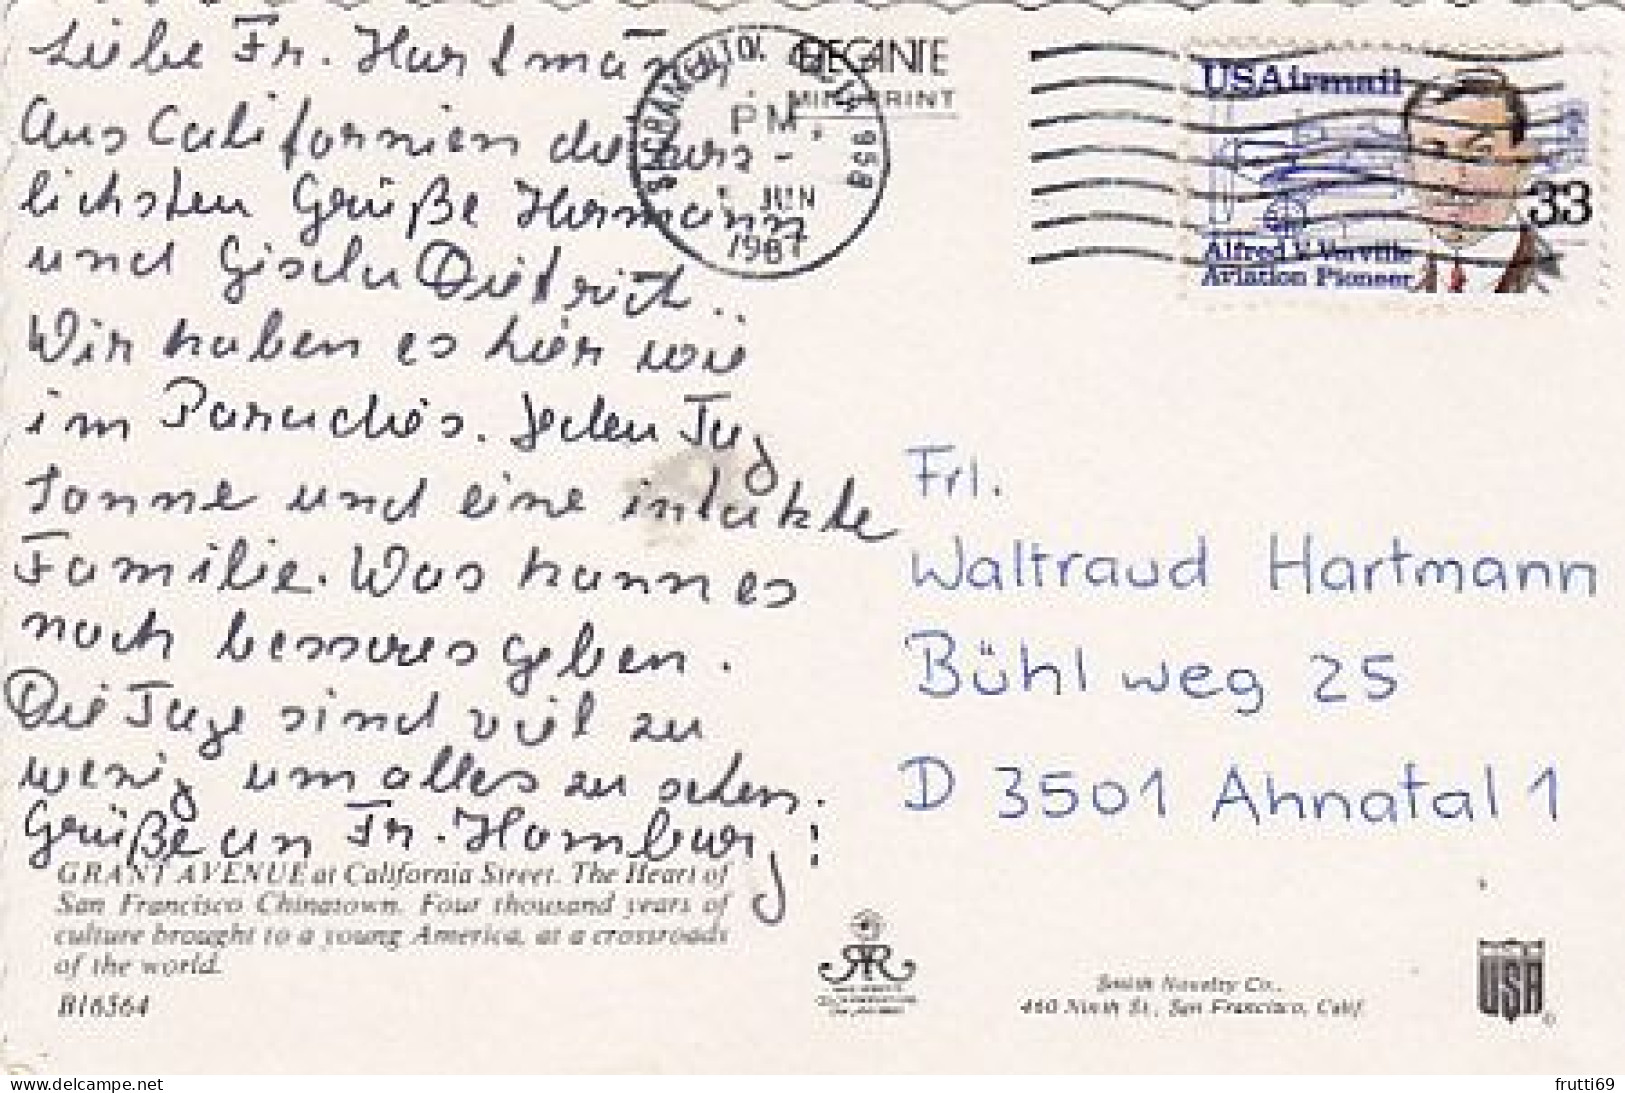 Liebe Fr. Hartman,
Aus Californien die herz-
lichsten Grüße Hermann
und Gisela Dietrich.
Wir haben es hier wie
im Paradies. Jeden Tag
Sonne und eine intakte
Familie. Was kann es
noch besseres geben.
Die Tage sind viel zu
wenig um alles zu sehen.
Grüße an Fr. Homburg!
GRANT AVENUE at California Street. The Heart of
San Francisco Chinatown. Four thousand years of
culture brought to a young America, at a crossroads
of the world.
B16564
ELEGANTE
MINIPRINT
SACRAMENTO, 958
PM
JUN
1987
USAirmail
33
Alfred V. Verville
Aviation Pioneer
Frl.
Waltraud Hartmann
Bühlweg 25
D 3501 Ahnatal 1
Smith Novelty Co.,
460 Ninth St., San Francisco, Calif.
USA
www.delcampe.net
frutti69